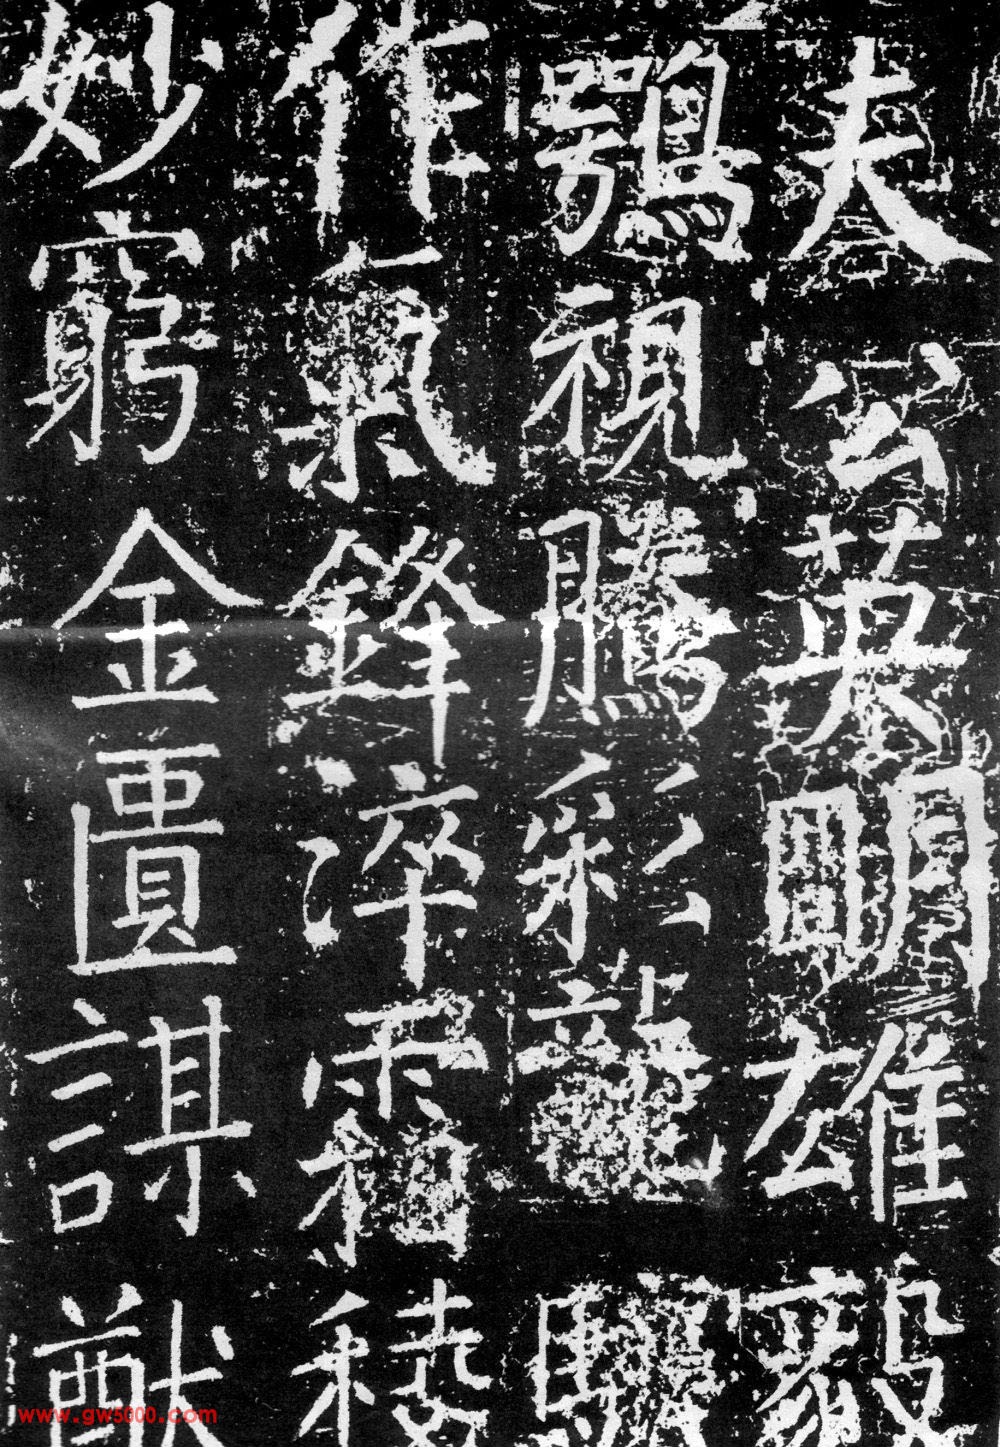 夫公英明雄毅
鶚視騰彩龍
作氣鋒淬霜稜
妙窮金匱謀猷
www.gw5000.com